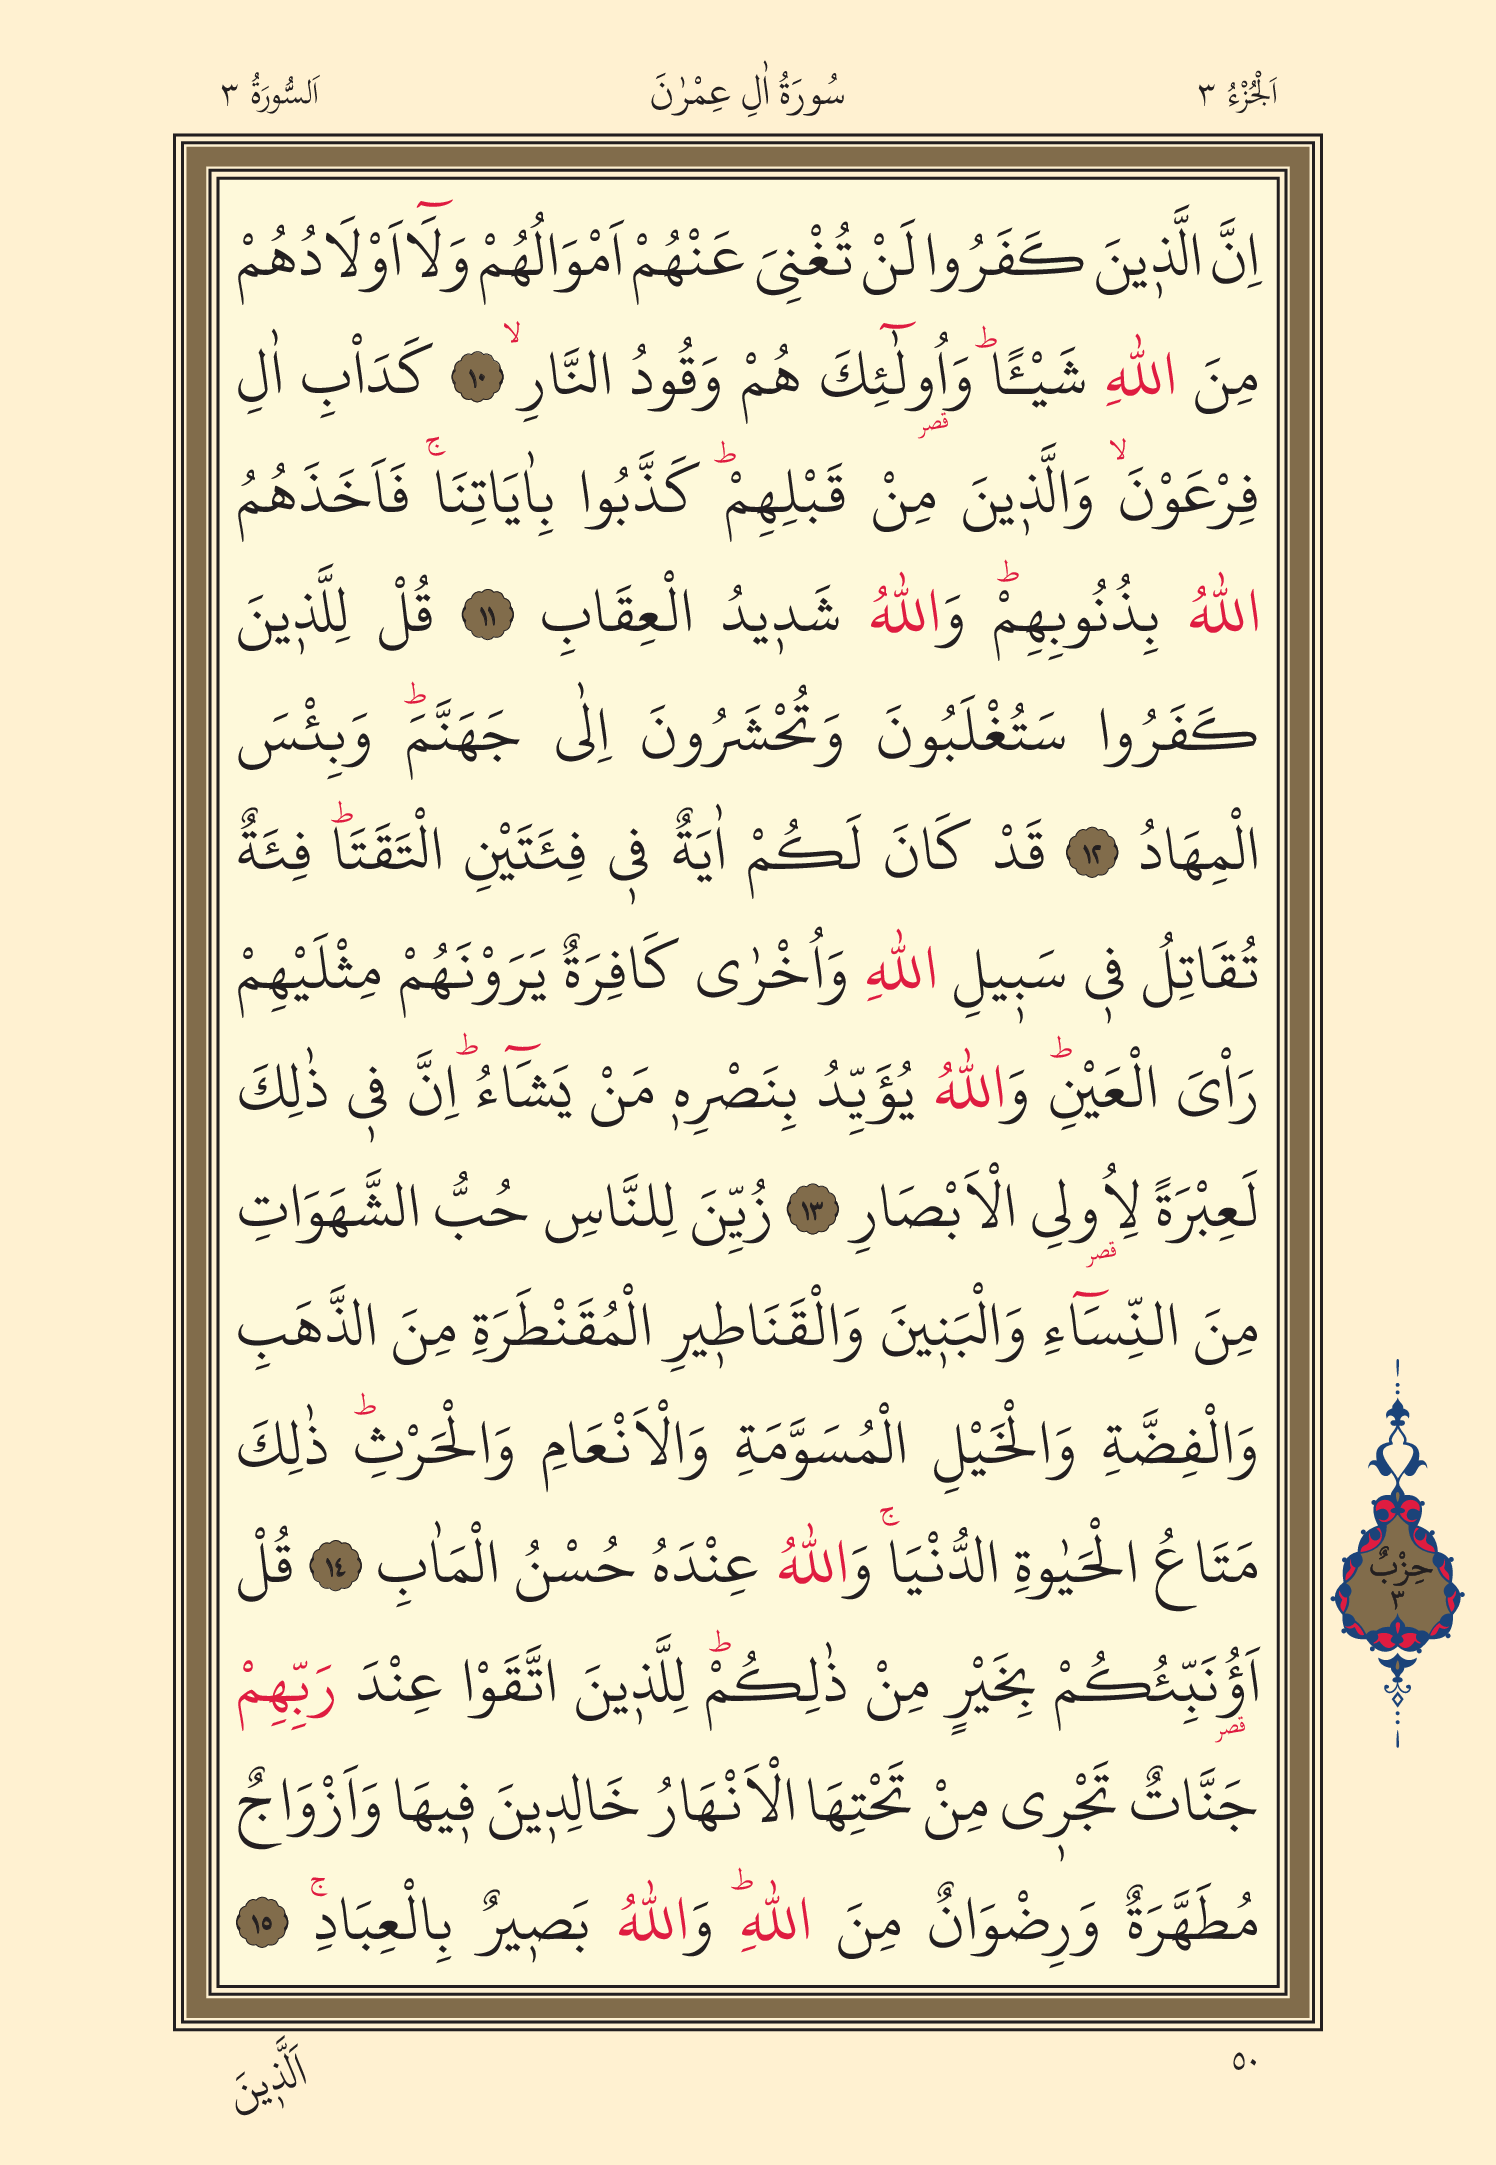 اَلْجُزْءُ ٣
سُورَةُ اٰلِ عِمْرٰنَ
اَلسُّورَةُ ٣
اِنَّ الَّذ۪ينَ كَفَرُوا لَنْ تُغْنِيَ عَنْهُمْ اَمْوَالُهُمْ وَلَٓا اَوْلَادُهُمْ
مِنَ اللّٰهِ شَيْـًٔاۜ وَاُو۬لٰٓئِكَ هُمْ وَقُودُ النَّارِۙ ١٠ كَدَاْبِ اٰلِ
قصر
فِرْعَوْنَۙ وَالَّذ۪ينَ مِنْ قَبْلِهِمْۜ كَذَّبُوا بِاٰيَاتِنَاۚ فَاَخَذَهُمُ
اللّٰهُ بِذُنُوبِهِمْۜ وَاللّٰهُ شَد۪يدُ الْعِقَابِ ١١ قُلْ لِلَّذ۪ينَ
كَفَرُوا سَتُغْلَبُونَ وَتُحْشَرُونَ اِلٰى جَهَنَّمَۜ وَبِئْسَ
الْمِهَادُ ١٢ قَدْ كَانَ لَكُمْ اٰيَةٌ ف۪ي فِئَتَيْنِ الْتَقَتَاۜ فِئَةٌ
تُقَاتِلُ ف۪ي سَب۪يلِ اللّٰهِ وَاُخْرٰى كَافِرَةٌ يَرَوْنَهُمْ مِثْلَيْهِمْ
رَاْيَ الْعَيْنِۜ وَاللّٰهُ يُؤَيِّدُ بِنَصْرِه۪ مَنْ يَشَٓاءُۜ اِنَّ ف۪ي ذٰلِكَ
لَعِبْرَةً لِاُو۬لِي الْاَبْصَارِ ١٣ زُيِّنَ لِلنَّاسِ حُبُّ الشَّهَوَاتِ
قصر
مِنَ النِّسَٓاءِ وَالْبَن۪ينَ وَالْقَنَاط۪يرِ الْمُقَنْطَرَةِ مِنَ الذَّهَبِ
وَالْفِضَّةِ وَالْخَيْلِ الْمُسَوَّمَةِ وَالْاَنْعَامِ وَالْحَرْثِۜ ذٰلِكَ
مَتَاعُ الْحَيٰوةِ الدُّنْيَاۚ وَاللّٰهُ عِنْدَهُ حُسْنُ الْمَاٰبِ ١٤ قُلْ
اَؤُ۬نَبِّئُكُمْ بِخَيْرٍ مِنْ ذٰلِكُمْۜ لِلَّذ۪ينَ اتَّقَوْا عِنْدَ رَبِّهِمْ
قصر
جَنَّاتٌ تَجْر۪ي مِنْ تَحْتِهَا الْاَنْهَارُ خَالِد۪ينَ ف۪يهَا وَاَزْوَاجٌ
مُطَهَّرَةٌ وَرِضْوَانٌ مِنَ اللّٰهِۜ وَاللّٰهُ بَص۪يرٌ بِالْعِبَادِۚ ١٥
حِزْبٌ
٣
٥٠
اَلَّذ۪ينَ